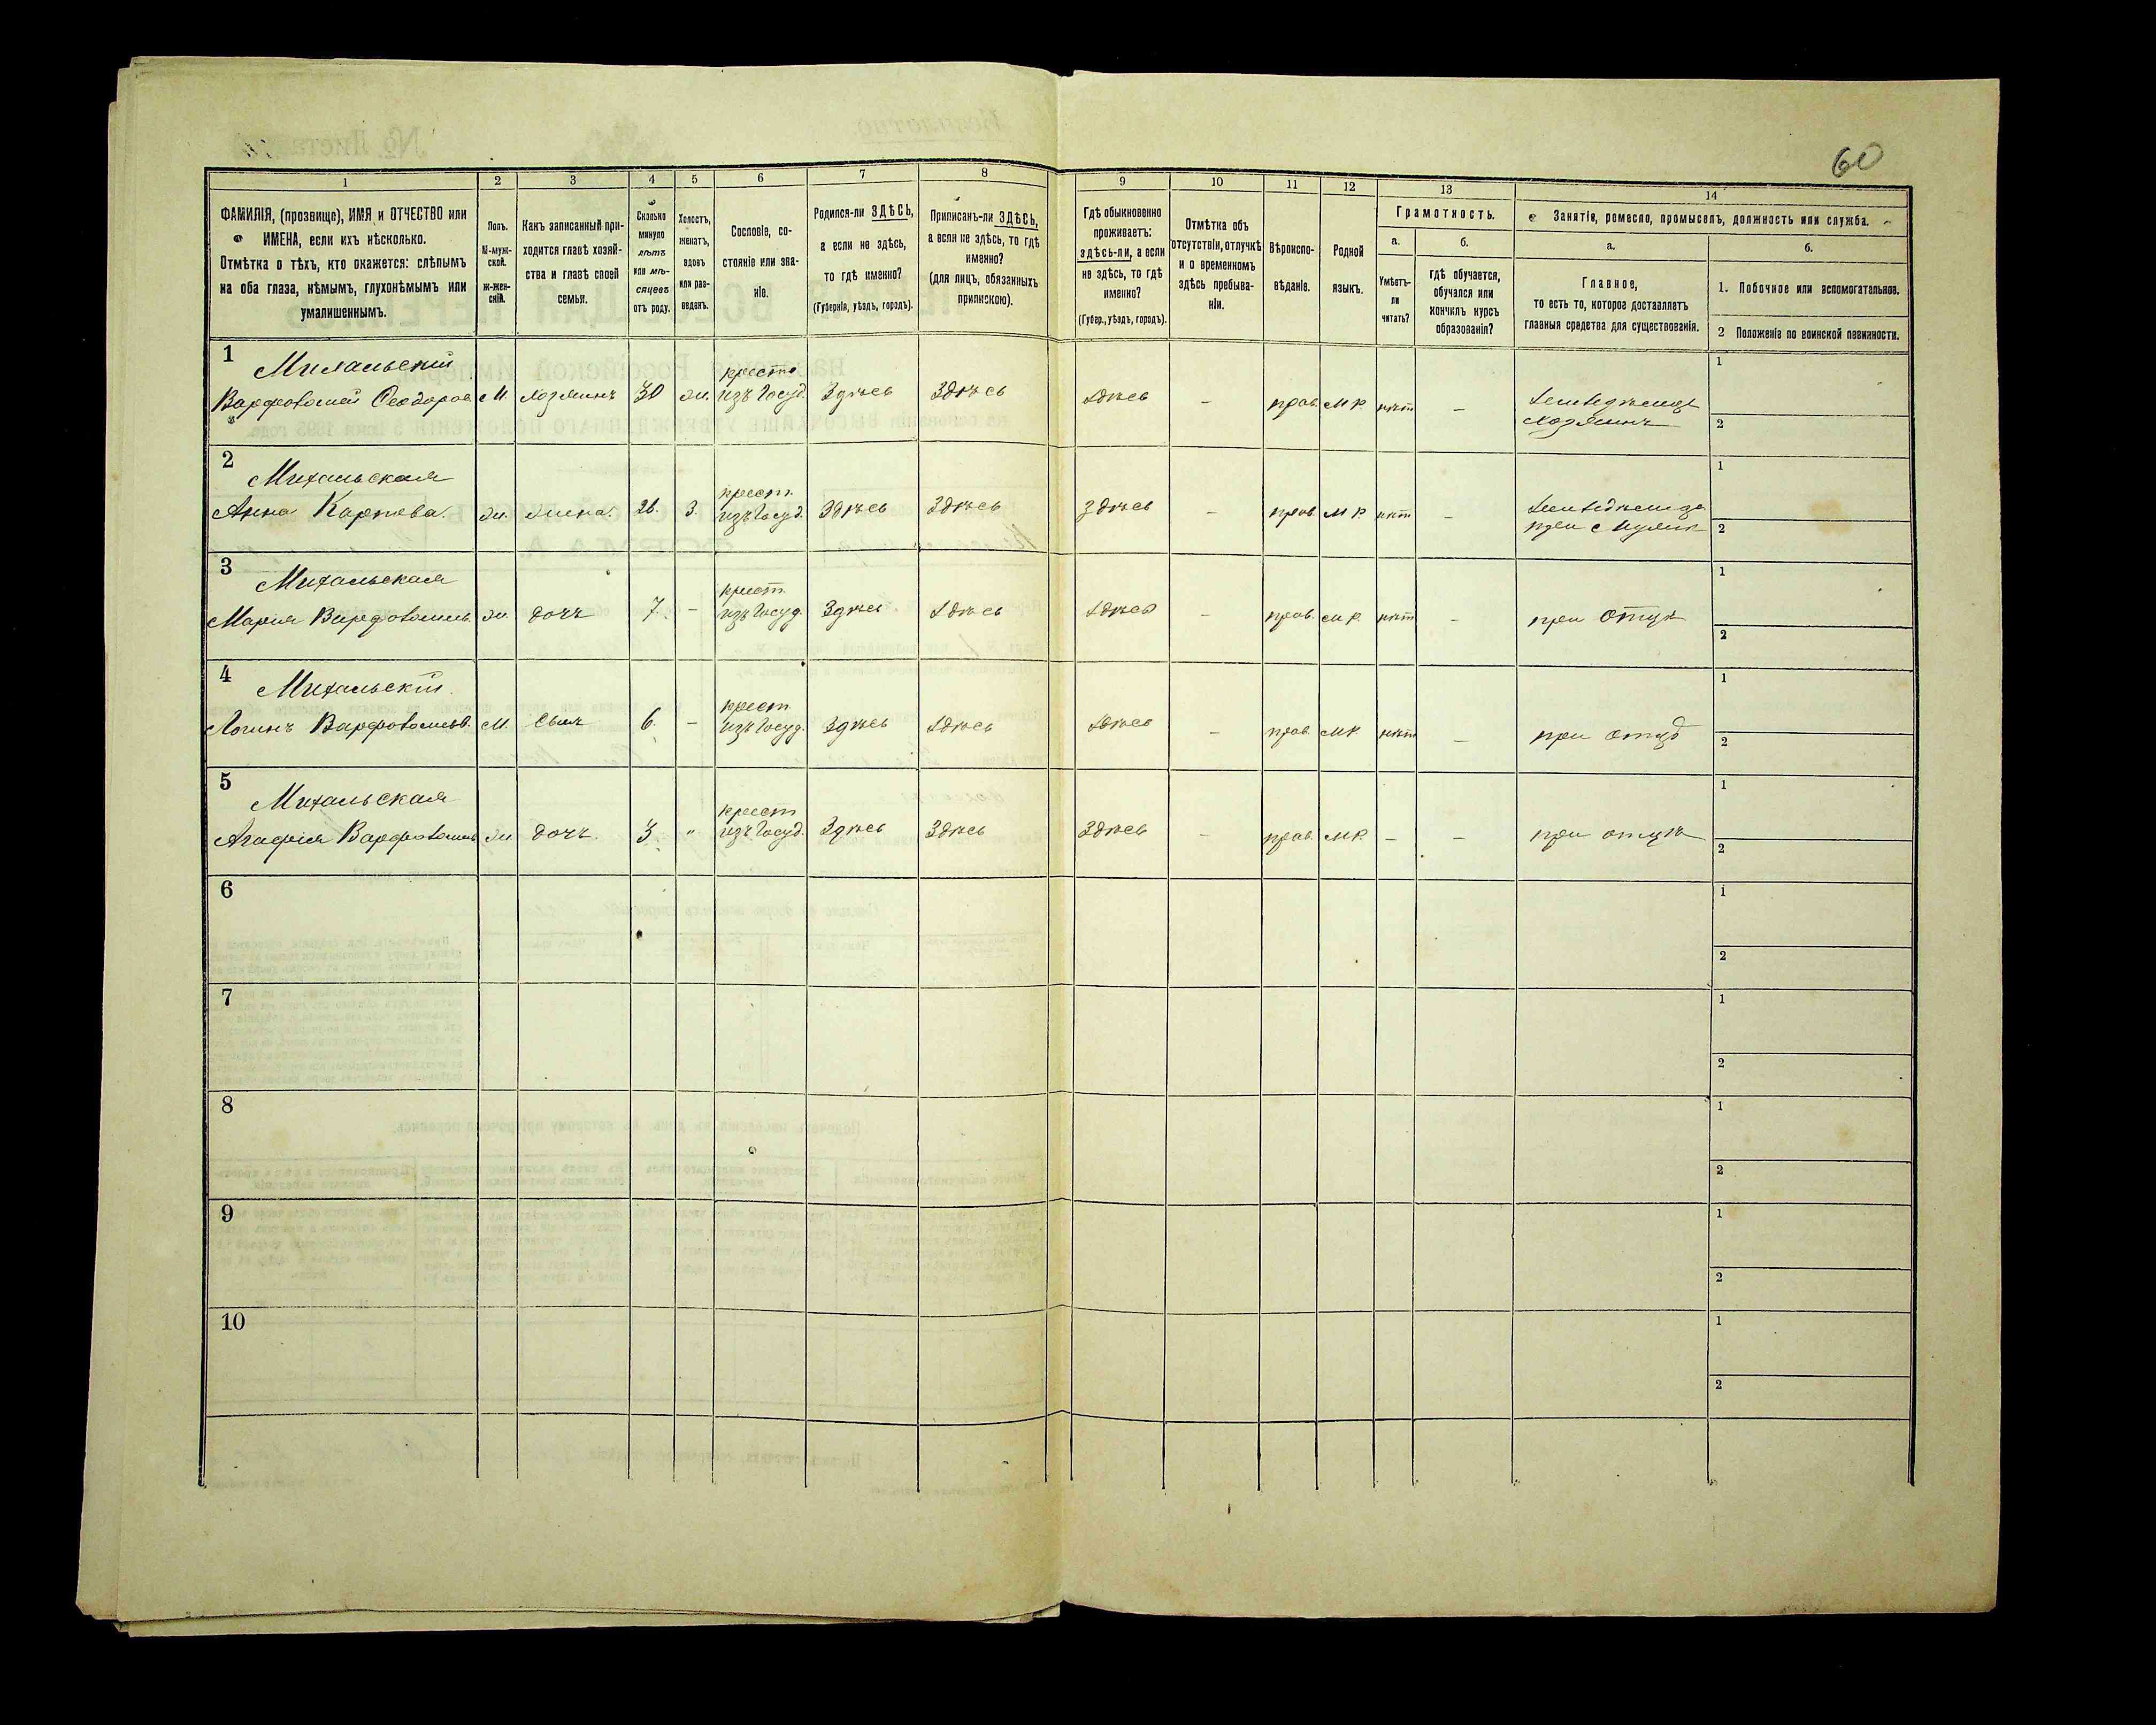 60
1 2 3 4 5 6 7 8 9 10 11 12 13 14
ФАМИЛІЯ, (прозвище), ИМЯ и ОТЧЕСТВО или
ИМЕНА, если ихъ нѣсколько.
Отмѣтка о тѣхъ, кто окажется: слѣпымъ
на оба глаза, нѣмымъ, глухонѣмымъ или
умалишеннымъ.
Полъ.
М-муж-
ской.
ж-жен-
скій.
Какъ записанный при-
ходится главѣ хозяй-
ства и главѣ своей
семьи.
Сколько
минуло
лѣтъ
или мѣ-
сяцевъ
отъ роду.
Холостъ,
женатъ,
вдовъ
или раз-
веденъ.
Сословіе, со-
стояніе или зва-
ніе.
Родился-ли ЗДѢСЬ,
а если не здѣсь,
то гдѣ именно?
(Губернія, уѣздъ, городъ).
Приписанъ-ли ЗДѢСЬ,
а если не здѣсь, то гдѣ
именно?
(для лицъ, обязанныхъ
припискою).
Гдѣ обыкновенно
проживаетъ:
здѣсь-ли, а если
не здѣсь, то гдѣ
именно?
(Губер., уѣздъ, городъ).
Отмѣтка объ
отсутствіи, отлучкѣ
и о временномъ
здѣсь пребыва-
ніи.
Вѣроиспо-
вѣданіе.
Родной
языкъ.
Грамотность.
а.
Умѣетъ-
ли
читать?
б.
гдѣ обучается,
обучался или
кончилъ курсъ
образованія?
Занятіе, ремесло, промыселъ, должность или служба.
а.
Главное,
то есть то, которое доставляетъ
главныя средства для существованія.
б.
1. Побочное или вспомогательное.
2 Положеніе по воинской повинности.
1 Михальскій
Варфоломей Ѳеодоров М. хозяинъ 30 ж. крест. изъ Госуд. Здѣсь Здѣсь здѣсь – прав. М Р. нѣт – Земледѣлецъ
хозяинъ
1
2
2 Михальская
Анна Карпова. ж. жена. 26. З. крест. изъ Госуд. Здѣсь Здѣсь Здѣсь – прав. М Р. нѣт – Земледѣлица
при Мужѣ
1
2
3 Михальская
Мария Варфоломѣев. ж. дочь 7. – крест. изъ Госуд. Здѣсь Здѣсь Здѣсь – прав. М Р. нѣт – при Отцѣ
1
2
4 Михальскій.
Логинъ Варфоломѣев. М. Сынъ 6. – крест изъ Госуд. Здѣсь Здѣсь Здѣсь – прав. М Р нѣт – при отцѣ
1
2
5 Михальская
Агафия Варфоломѣев ж. дочь. 3 " крест изъ Госуд. Здѣсь Здѣсь Здѣсь – прав. М Р. – – при отцѣ
1
2
6
1
2
7
1
2
8
1
2
9
1
2
10
1
2